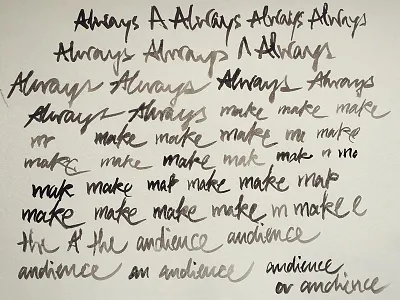 Always A Always Always Always
Always Always A Always
Always Always Always Always
Always Always make make make
mr make make make m make
make make make mak mak n mo
mak make mak make make mak
make make make make make m make e
the A' the audience audience
audience an audience audience
or audience